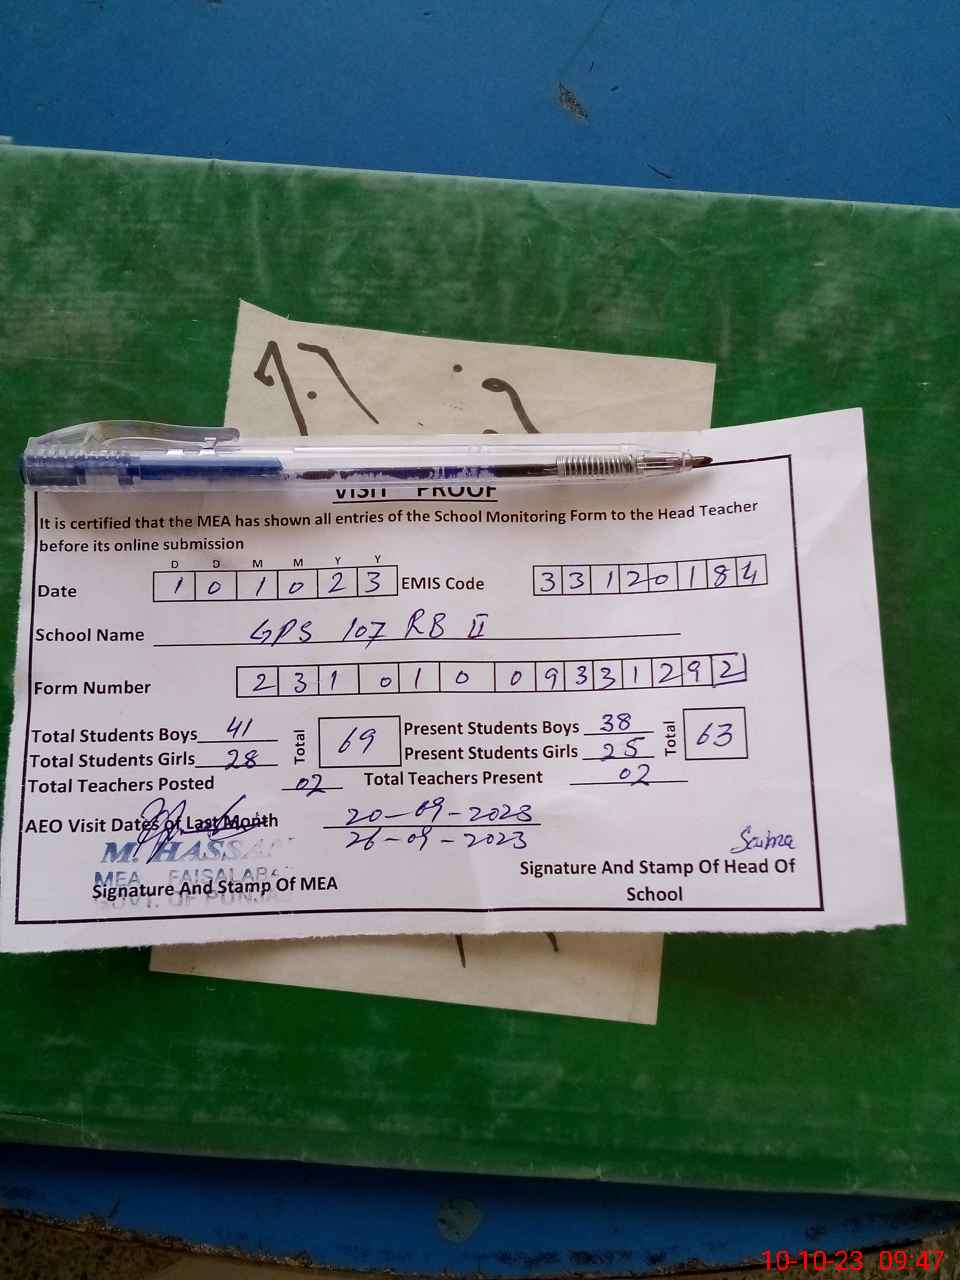 VISIT PROOF
It is certified that the MEA has shown all entries of the School Monitoring Form to the Head Teacher
before its online submission
D D M M Y Y
Date 1 0 1 0 2 3 EMIS Code 3 3 1 2 0 1 8 4
School Name GPS 107 RB II
Form Number 2 3 1 0 1 0 0 9 3 3 1 2 9 2
Total Students Boys 41 Total 69 Present Students Boys 38 Total 63
Total Students Girls 28 Present Students Girls 25
Total Teachers Posted 02 Total Teachers Present 02
AEO Visit Dates of Last Month 20-09-2023
26-09-2023
M. HASSAN
MEA FAISALABAD
GOVT. OF PUNJAB
Signature And Stamp Of MEA
Saima
Signature And Stamp Of Head Of
School
10-10-23 09:47